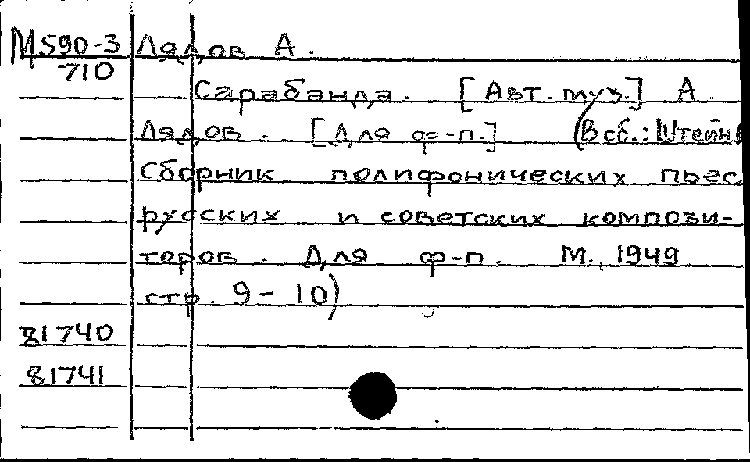 М590-3 Лядов А.
710
Сарабанда. [Авт. муз.] А.
Лядов. [Для ф-п.] (В сб.: Штейн
Сборник полифонических пьес
русских и советских компози-
торов. Для ф-п. М., 1949
стр. 9-10)
81740
81741